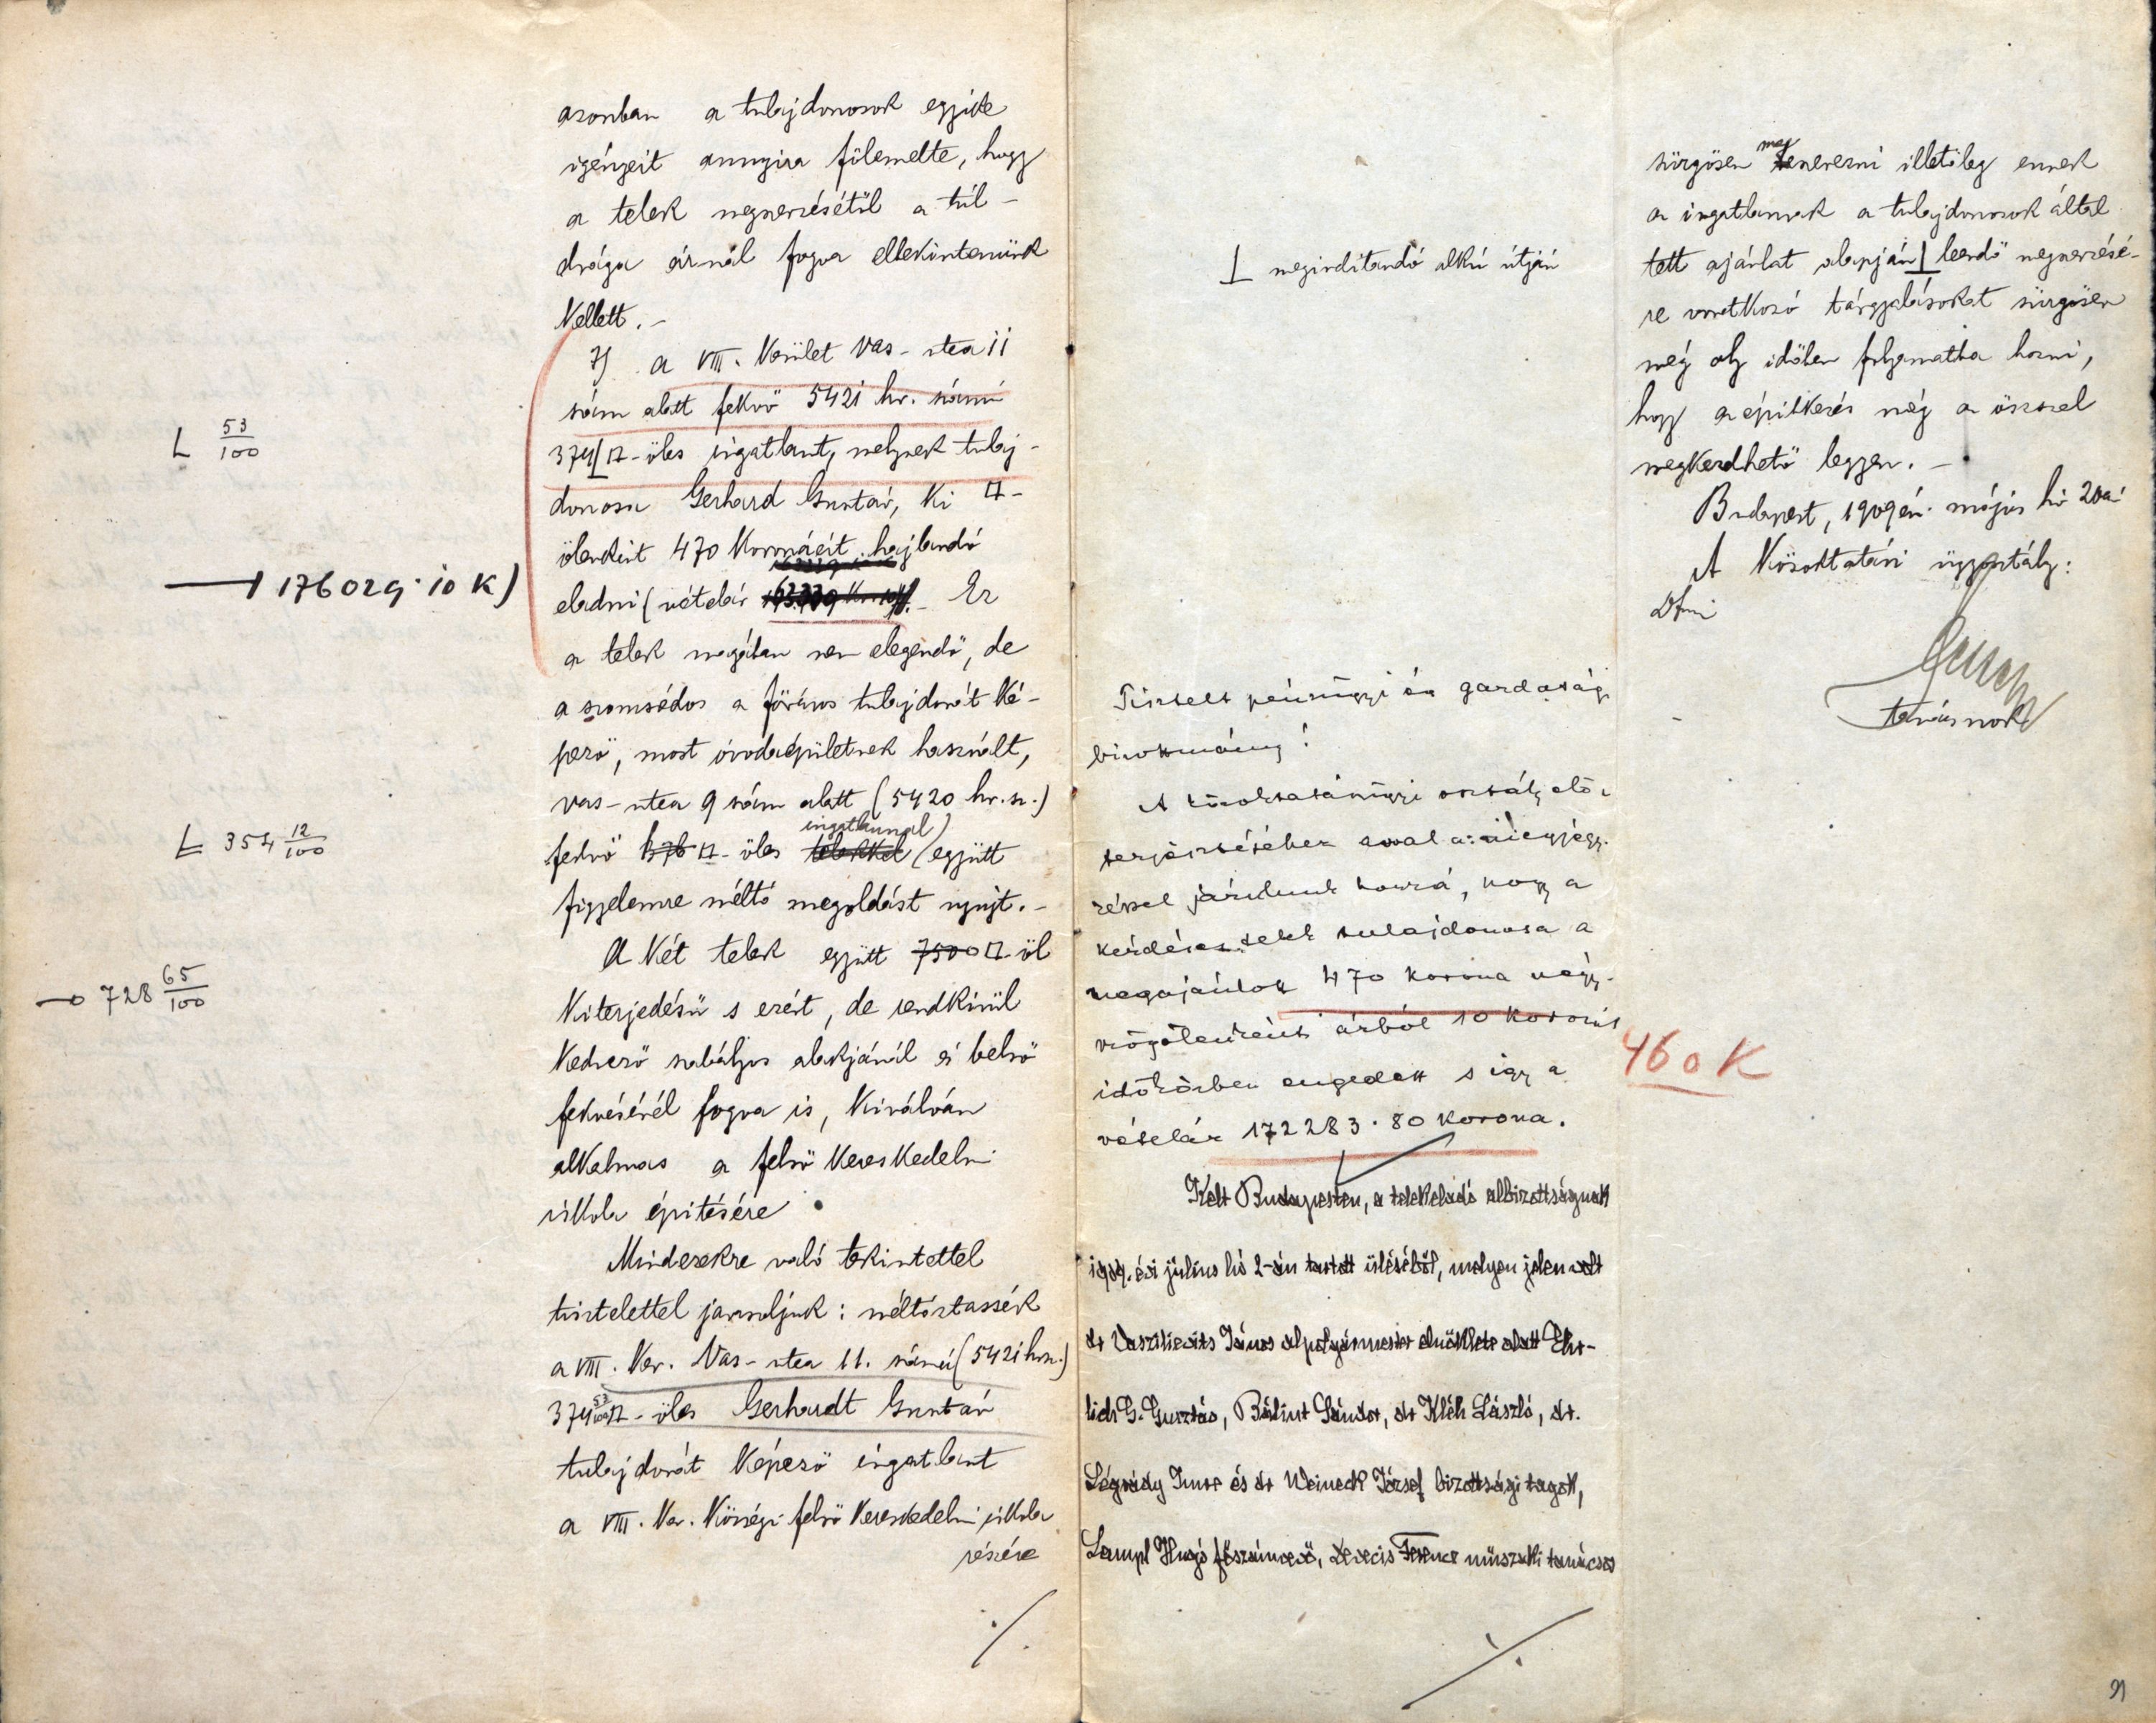 azonban a tulajdonosok egyike
igényeit annyira fölemelte, hogy
a telek megszerzésétől a túl-
drága árnál fogva eltekintenünk
kellett. -
7) a VIII. kerület Vas-utca 11
szám alatt fekvő 5421 hr. számú
L 53/100
374 L □-öles ingatlant, melynek tulaj-
donosa Gerhard Gusztáv, ki □-
ölenkint 470 koronáért hajlandó
eladni (vételár
176029·10 K)
Ez
a telek magában nem elegendő, de
a szomszédos a főváros tulajdonát ké-
pező, most óvodaépületnek használt,
vas-utca 9 szám alatt (5420 hr.sz.)
L 354 12/100
ingatlannal
fekvő 376 □-öles telekkel együtt
figyelemre méltó megoldást nyujt. -
728 65/100
A két telek együtt 7500 □-öl
kiterjedésű s ezért, de rendkívül
kedvező szabályos alakjánál és belső
fekvésénél fogva is, kiválóan
alkalmas a felső kereskedelmi
iskola építésére
Mindezekre való tekintettel
tisztelettel javasoljuk: méltóztassék
a VIII. ker. Vas-utca 11. számú (5421 hrsz.)
374 53/100 □-öles Gerhardt Gusztáv
tulajdonát képező ingatlant
a VIII. ker. községi felső kereskedelmi iskola
részére
./.
L megindítandó alku útján
Tisztelt pénzügyi és gazdasági
bizottmány!
A közoktatásügyi osztály elő-
terjesztéséhez azzal a megjegy-
zéssel járulunk hozzá, hogy a
kérdéses telek tulajdonosa a
megajánlott 470 korona négy-
szögölenkénti árból 10 koronát
időközben engedett s így a
vételár 172283·80 korona.
Kelt Budapesten, a telekeladó albizottságnak
1909. évi július hó 2-án tartott üléséből, melyen jelen volt
dr Vaszilievits János alpolgármester elnöklete alatt Ehr-
lich G. Gusztáv, Bálint Sándor, dr Kléh László, dr.
Légrády Imre és dr Weineck József bizottsági tagok,
Lampl Hugó főszámvevő, Devecis Ferencz műszaki tanácsos
./.
meg
sürgősen szerezni illetőleg ennek
az ingatlannak a tulajdonosok által
tett ajánlat alapján L leendő megszerzésé-
re vonatkozó tárgyalásokat sürgősen
még oly időben folyamatba hozni,
hogy az építkezés még az ősszel
megkezdhető legyen. -
Budapest, 1909 évi május hó 20án
A Közoktatási ügyosztály:
tanácsnok
460 K
91